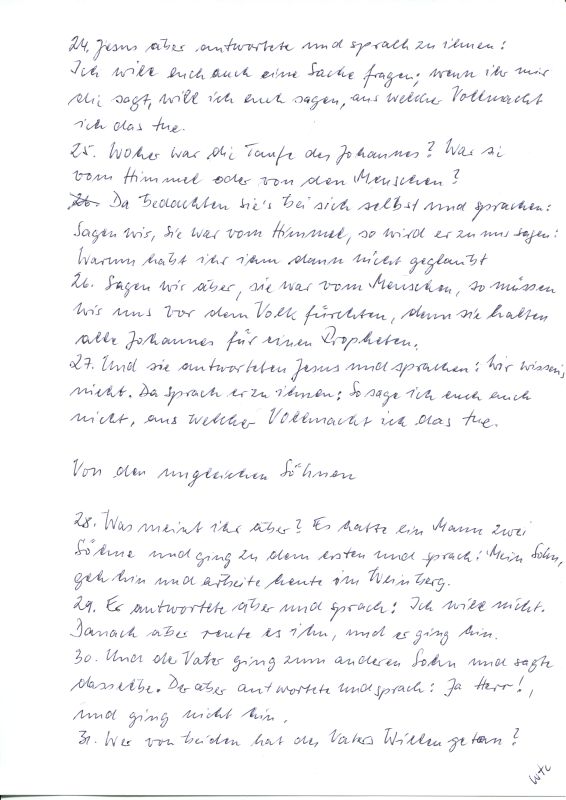 24. Jesus aber antwortete und sprach zu ihnen:
Ich will euch auch eine Sache fragen; wenn ihr mir
die sagt, will ich euch sagen, aus welcher Vollmacht
ich das tue.
25. Woher war die Taufe des Johannes? War sie
vom Himmel oder von den Menschen?
26. Da bedachten sie's bei sich selbst und sprachen:
Sagen wir, sie war vom Himmel, so wird er zu uns sagen:
Warum habt ihr ihm dann nicht geglaubt
26. Sagen wir aber, sie war vom Menschen, so müssen
wir uns vor dem Volk fürchten, denn sie halten
alle Johannes für einen Propheten.
27. Und sie antworteten Jesus und sprachen: Wir wissens
nicht. Da sprach er zu ihnen: So sage ich euch auch
nicht, aus welcher Vollmacht ich das tue.
Von den ungleichen Söhnen
28. Was meint ihr aber? Es hatte ein Mann zwei
Söhne und ging zu dem ersten und sprach: Mein Sohn,
geh hin und arbeite heute im Weinberg.
29. Er antwortete aber und sprach: Ich will nicht.
Danach aber reute es ihn, und er ging hin.
30. Und der Vater ging zum anderen Sohn und sagte
dasselbe. Der aber antwortete und sprach: Ja Herr!,
und ging nicht hin.
31. Wer von beiden hat des Vaters Willen getan?